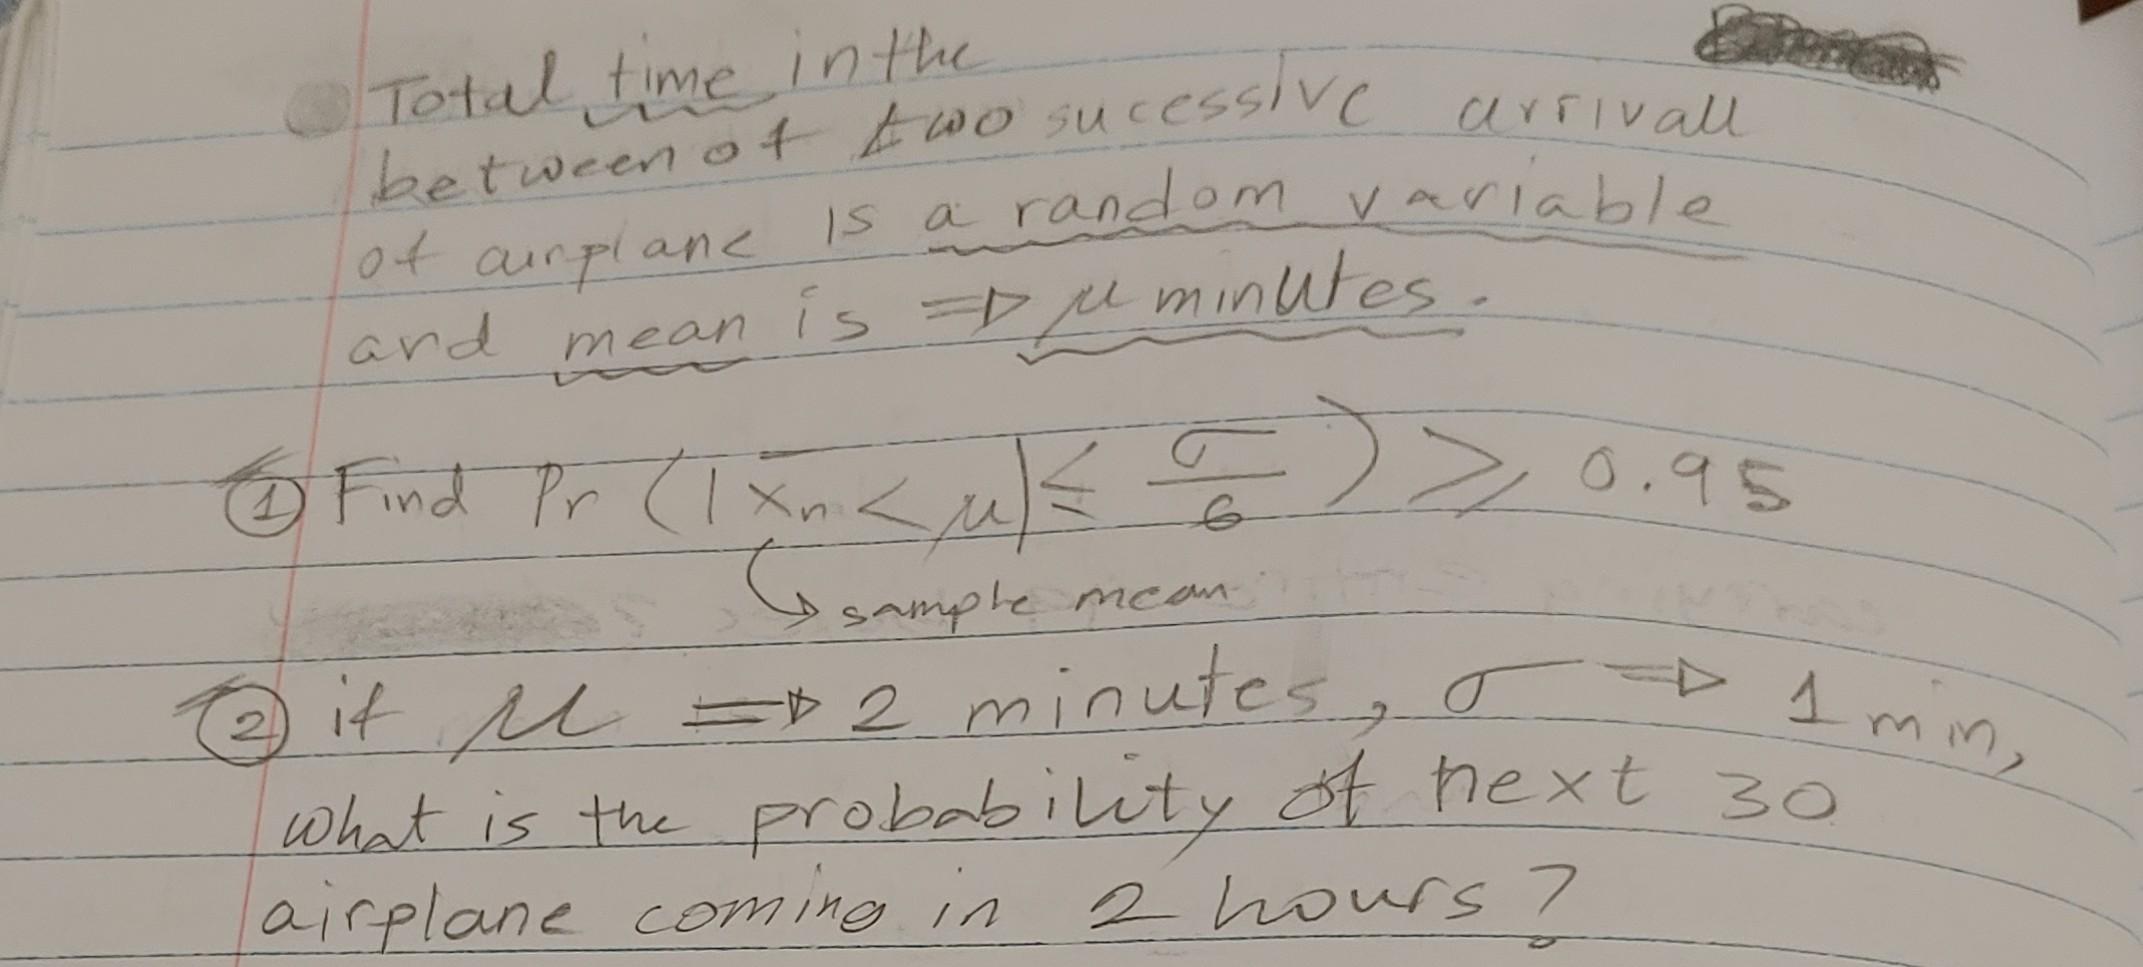 Total time in the
between of two sucessive arrivall
of airplane is a random variable
and mean is ⇒ μ minutes.
① Find Pr (|x̄n < μ| ≤ σ/6) ≥ 0.95
↳ sample mean
② if μ ⇒ 2 minutes, σ ⇒ 1 min,
what is the probability of next 30
airplane coming in 2 hours?